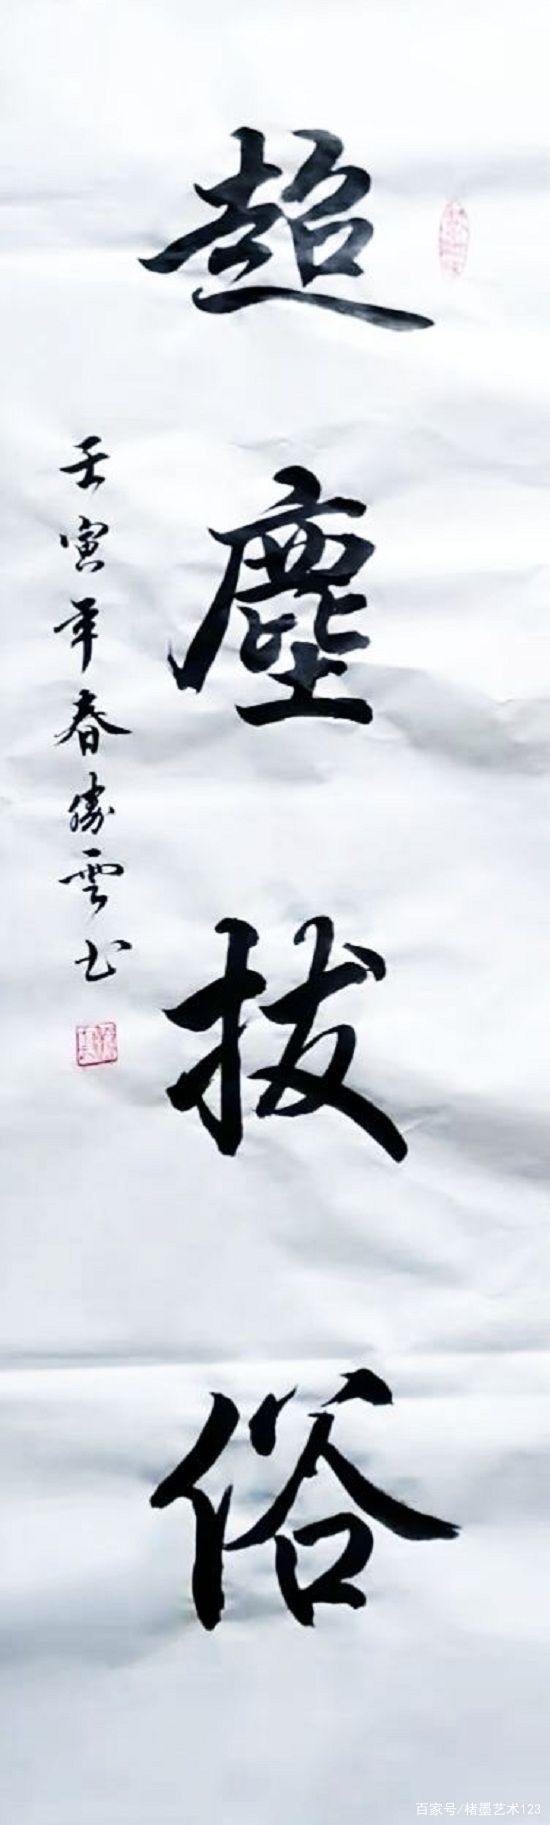 超塵拔俗
壬寅年春勝雲书
百家号/楮墨艺术123